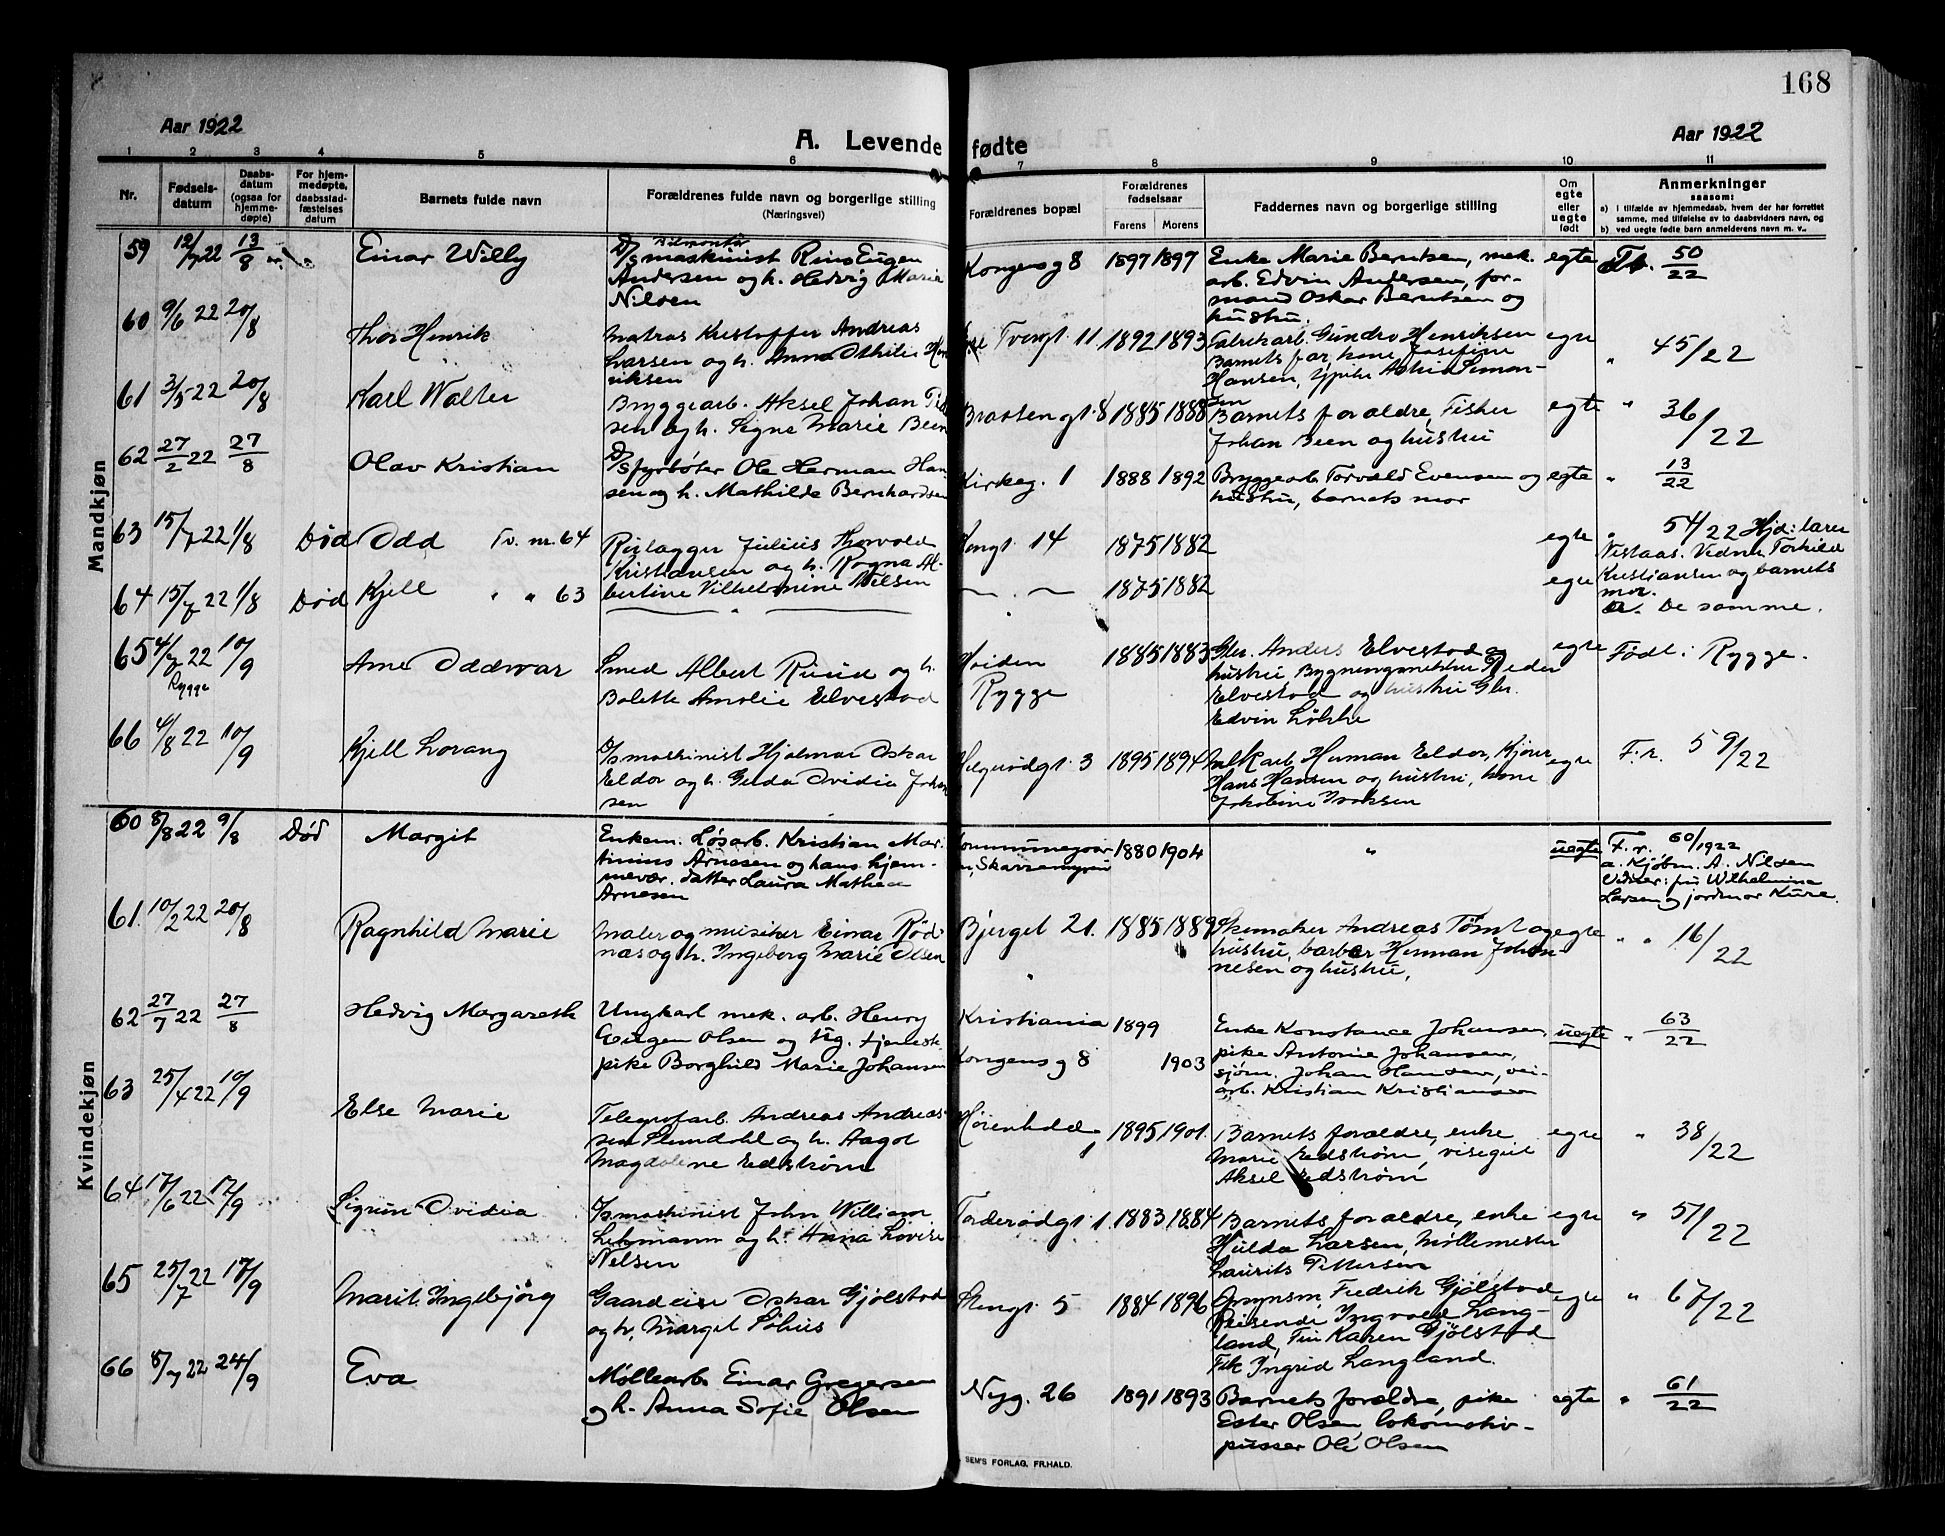 168
Aar 1922
A. Levende fødte
Aar 1922
1 2 3 4 5 6 7 8 9 10 11
Nr.
Fødsels-
datum
Daabs-
datum
(ogsaa for
hjemme-
døpte)
For hjem-
medøpte,
daabsstad-
fæstelses
datum
Barnets fulde navn
Forældrenes fulde navn og borgerlige stilling
(Næringsvei)
Forældrenes bopæl
Forældrenes
fødselsaar
Farens Morens
Faddernes navn og borgerlige stilling
Om
egte
eller
uegte
født
Anmerkninger
saasom:
a) i tilfælde av hjemmedaab, hvem der har forrettet
samme, med tilføielse av to daabsvidners navn, og
b) ved uegte fødte barn anmelderens navn m. v..
Mandkjøn
59 12/7 22 13/8 Einar Willy
Bilmontør
D/S maskinist Rins Eugen
Andersen og h. Hedvig Marie
Nilsen
Kongensg 8 1897 1897
Enke Marie Berntsen, mek.
arb. Edvin Andersen, for-
mand Oskar Berntsen og
hustru.
egte Fr. 50/22
60 9/6 22 20/8 Thor Henrik
Matros Kristoffer Andreas
Larsen og h. Anna Othilie Hen
riksen
Tvergt 11 1892 1893
Fabrikarb. Gundro Henriksen
Barnets far, kone Josefine
Hansen, pike Astrid Simon-
sen
egte " 45/22
61 3/5 22 20/8 Karl Walter
Bryggearb. Aksel Johan
sen og h. Signe Marie Been
Braatengt. 8 1885 1888
Barnets forældre, Fisker
Johan Been og hustru
egte " 36/22
62 27/2 22 27/8 Olav Kristian
D/S fyrbøter Ole Herman Han
sen og h. Mathilde Bernhardsen
Kirkeg. 1 1888 1892
Bryggearb. Torvald Evensen og
hustru, barnets mor
egte " 13/22
63 15/7 22 1/8 Død Odd Tv. nr. 64
Rørlægger Julius Thorvald
Kristiansen og h. Ragna Al-
bertine Vilhelmine Nilsen
Kongt. 14 1875 1882
egte " 54/22 Hjd: lærer
Nistaas. Vidner Torhild
Kristiansen og barnets
mor.
64 15/7 22 1/8 Død Kjell " " 63
"
1875 1882 egte
De samme.
65 4/7 22 10/9 Arne Oddvar
Rygge
Smed Albert Ruud og h.
Bolette Amalie Elvestad
Høiden
Rygge
1885 1883
Gbr. Anders Elvestad og
hustru Bygningssnekker Peder
Elvestad og hustru Gbr.
Edvin Løkke
egte Født i Rygge.
66 4/8 22 10/9 Kjell Lorang
D/S maskinist Hjalmar Oskar
Eldor og h. Gerda Ovidia Johan
sen
Helgerødgt. 3 1895 1894
Herman Eldor, Kjører
Hans Hansen og hustru, kone
Jakobine Isaksen
egte F. r. 59/22
Kvindekjøn
60 8/8 22 9/8 Død Margit
Enkem. Løsarb. Kristian Mar-
tinius Arnesen og hans hjem-
mevær. datter Laura Mathea
Arnesen
Kommunegaar
n, Skarremyren
1880 1904
"
uegte F. r. 60/1922
a. Kjøbm. A. Nilsen
Vidner: fru Wilhelmina
Larsen og jordmor Kure.
61. 10/2 22 20/8 Ragnhild Marie
Maler og musiker Einar Rød-
næs og h. Ingeborg Marie Olsen
Bjerget 21. 1885 1889
Skomaker Andreas Tømt og
hustru, barber Herman Johan-
nesen og hustru,
egte " " 16/22
62 27/7 22 27/8 Hedvig Margareth
Ungkarl mek. arb. Henry
Eugen Olsen og Ug. tjeneste
pike Borghild Marie Johansen
Kristiania 1899
Kongensg 8 1903
Enke Konstance Johansen,
pike Antonie Johansen,
sjøm. Johan Hansen, vei-
arb. Kristian Kristiansen
uegte " 63/22
63 25/4 22 10/9 Else Marie
Telegrafarb. Andreas Andreas-
sen Lundahl og h. Aagot
Magdalene Eidstrøm
1895 1901.
Barnets forældre, enke
Marie Eidstrøm, visegut
Aksel Eidstrøm
egte " 38/22
64 17/6 22 17/9 Sigrun Ovidia
D/S maskinist John William
Lehmann og h. Anna Lovise
Nelsen
Torderødgt. 1. 1883 1884
Barnets forældre, enke
Hulda Larsen, Møllemester
Laurits Pettersen
egte " 51/22
65 25/7 22 17/9 Marit Ingebjørg
Gaardeier Oskar Gjølstad
og h. Margit Søhus
Stengt. 5 1884 1896
Opsynsm. Fredrik Gjølstad
Reisende Ingvald Lang-
land, Fru Karen Gjølstad
Frk Ingrid Langland.
egte " 67/22
66 8/7 22 24/9 Eva
Møllearb. Einar Gregersen
og h. Anna Sofie Olsen
Nyg. 26 1891 1893
Barnets forældre, pike
Ester Olsen, lokomotiv-
pusser Ole Olsen
egte " 61/22
SEM'S FORLAG, FR.HALD.